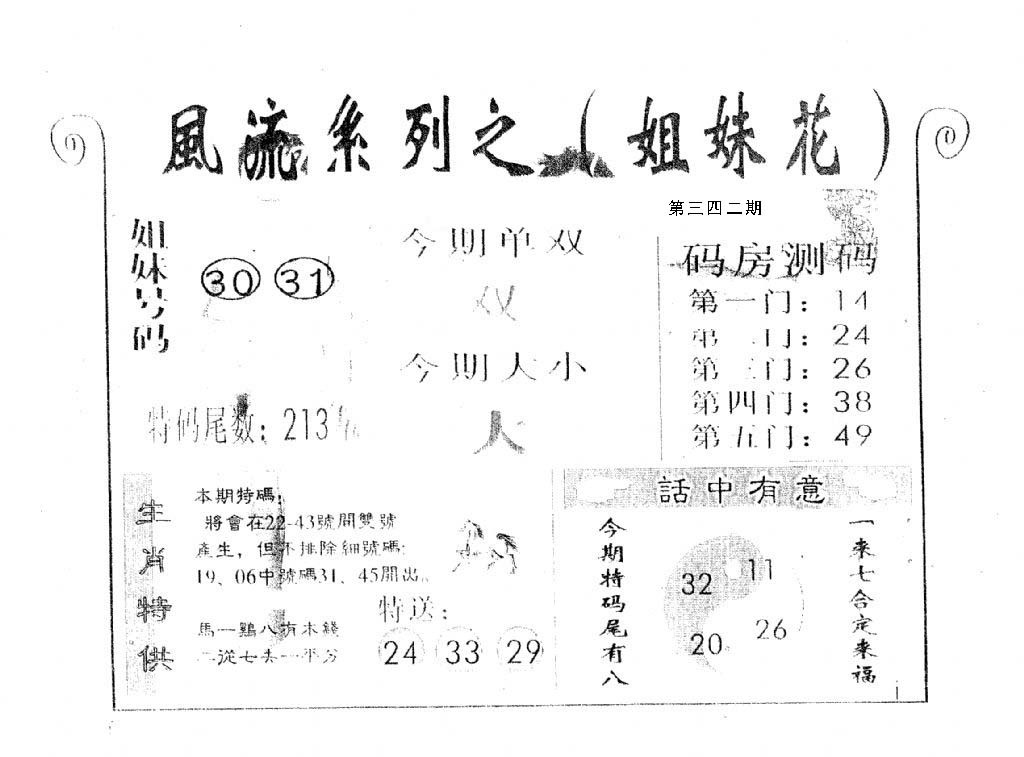 風流系列之（姐妹花）
第三四二期
姐妹号码
30 31
今期单双
双
今期大小
大
特码尾数：213
码房测码
第一门：14
第二门：24
第三门：26
第四门：38
第五门：49
生肖特供
本期特碼：
將會在22-43號間雙號
產生，但不排除細號碼：
19、06中號碼31、45開出。
馬一鷄八有木錢
二從七去一平分
特送：
24 33 29
話中有意
今期特码尾有八
32 11
20 26
一来七合定来福